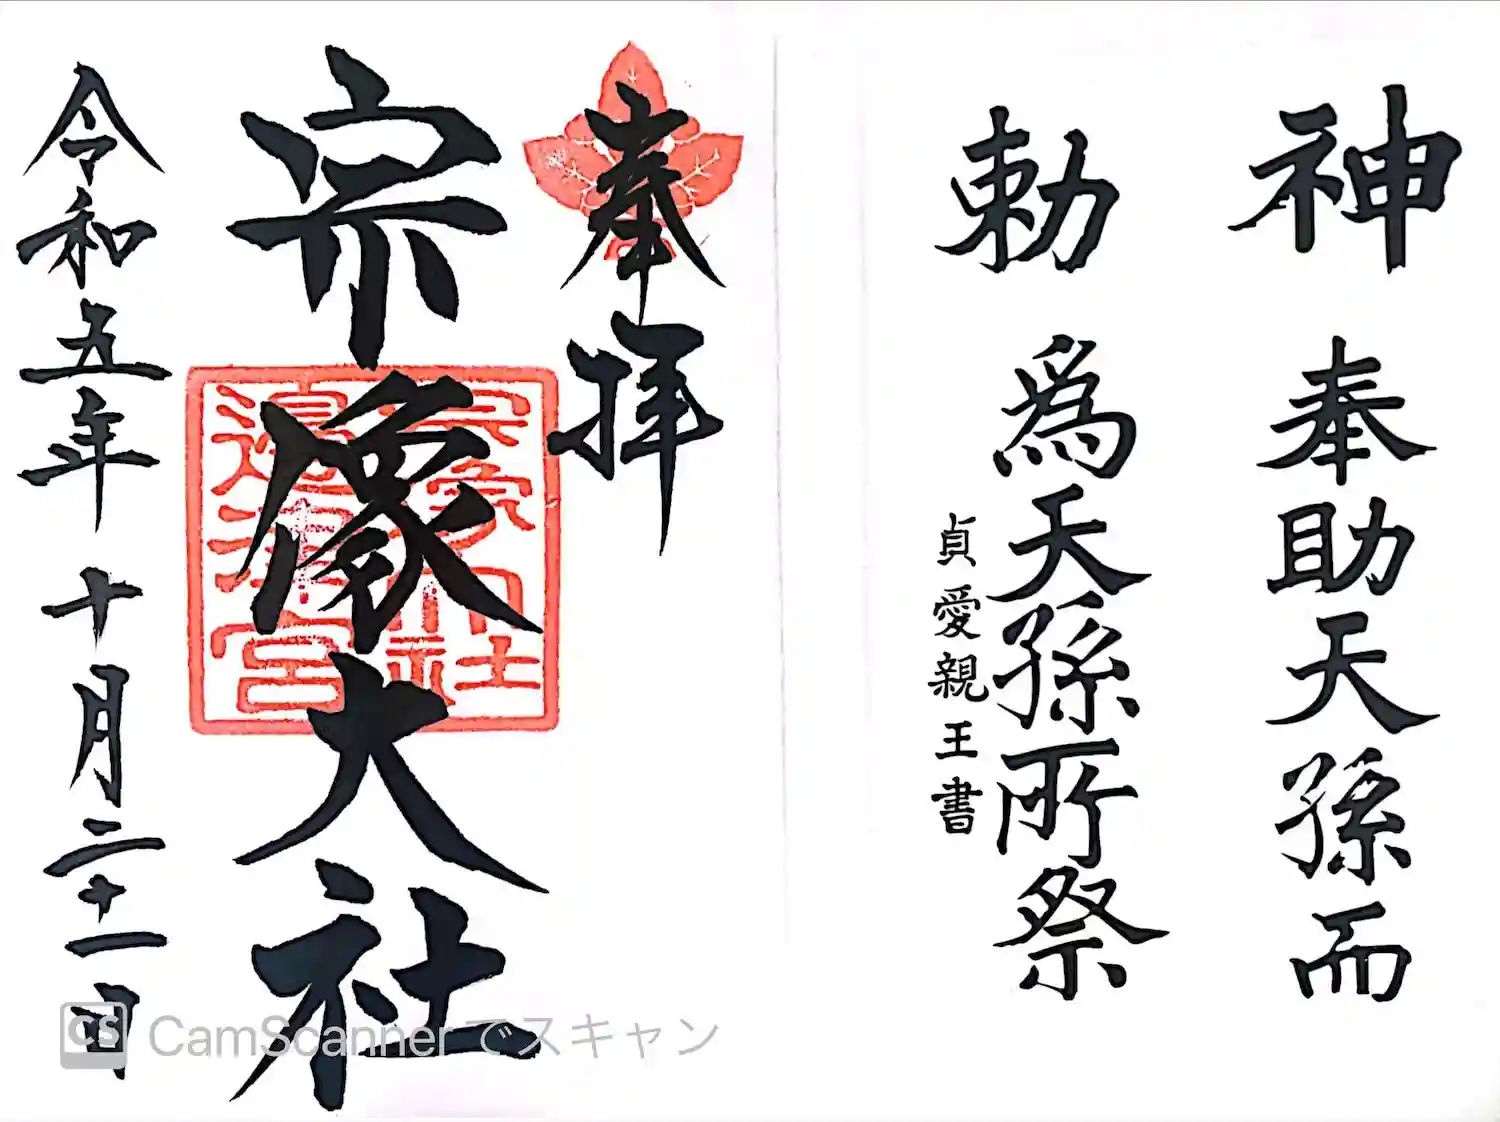 神勅
奉助天孫而
為天孫所祭
貞愛親王書
奉拝
宗像大社
宗像大社
邊津宮
令和五年十月二十一日
CS CamScannerでスキャン